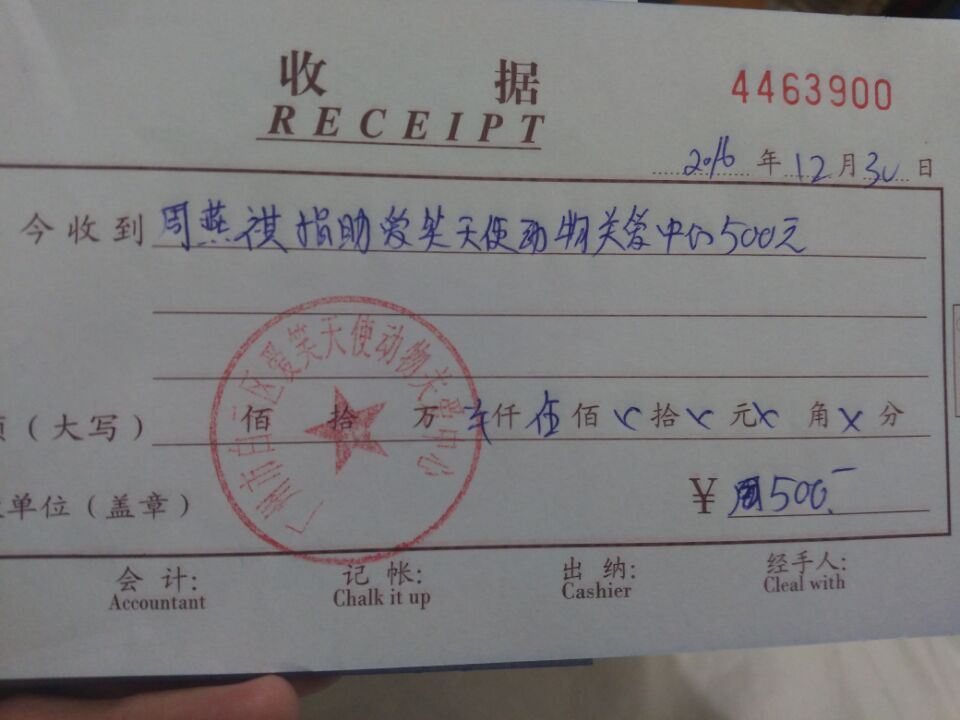 收据
RECEIPT
4463900
2016年12月30日
今收到 周燕祺捐助爱笑天使动物关爱中心500元
广州市白云区爱笑天使动物关爱中心
(大写) 佰 拾 万 仟伍佰 拾 元 角 分
单位(盖章) ¥ 500.-
会计: 记帐: 出纳: 经手人:
Accountant Chalk it up Cashier Cleal with